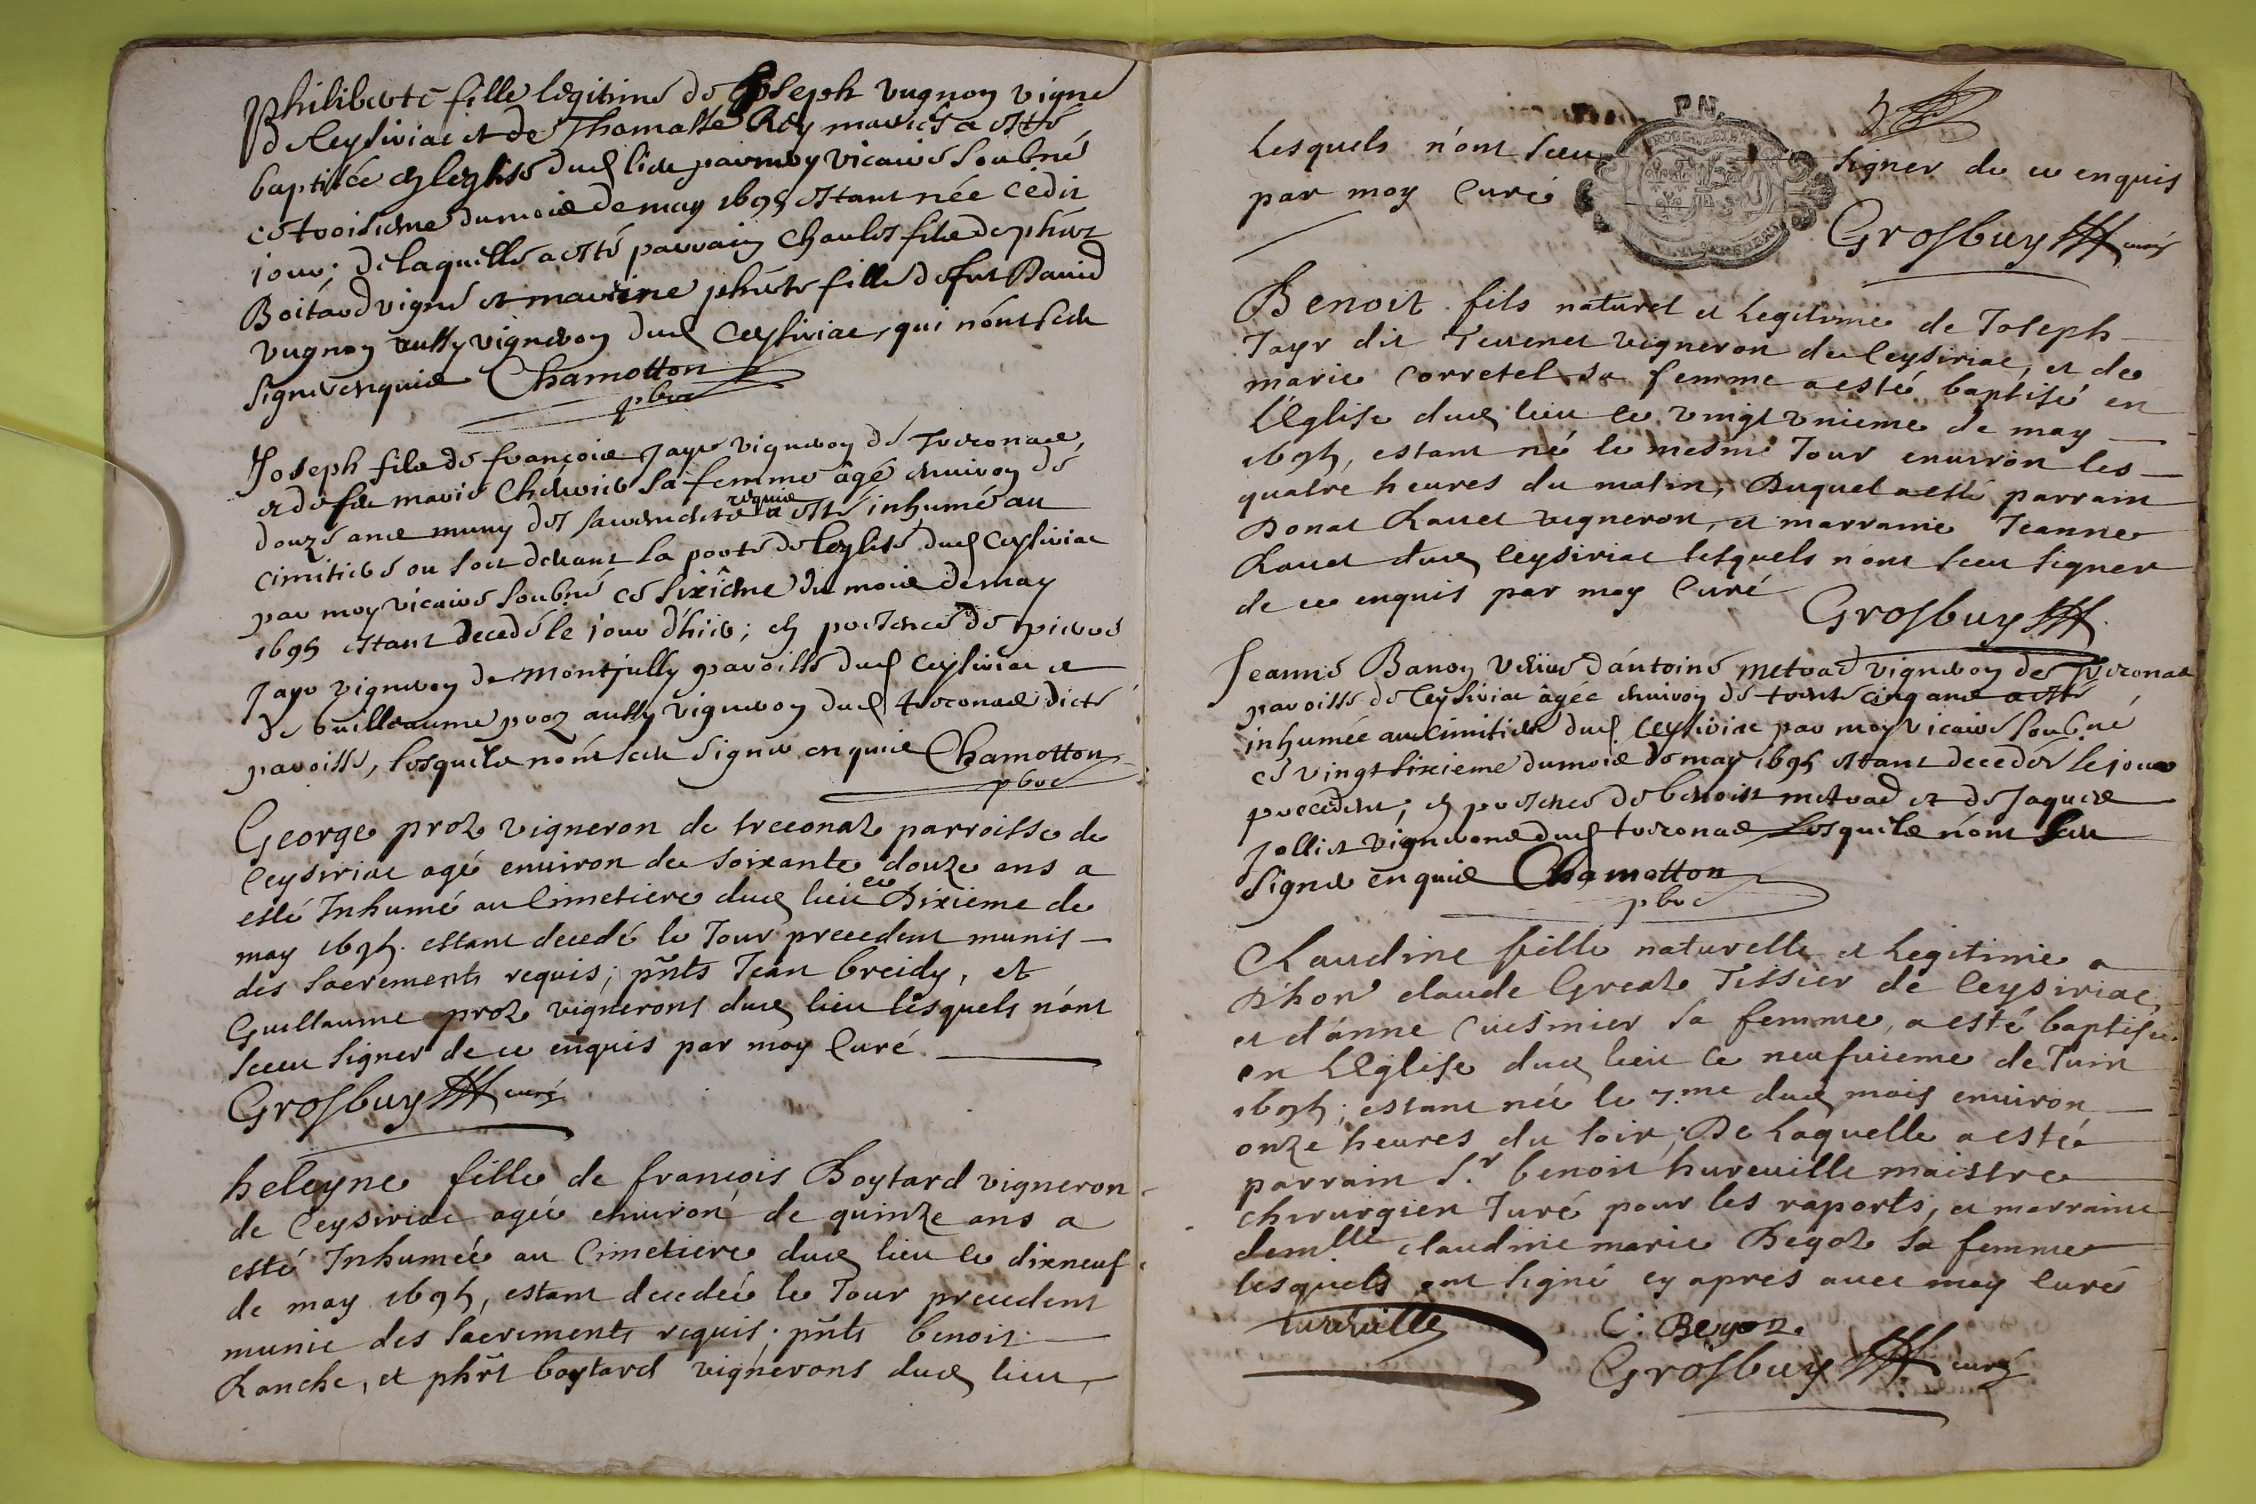 Philiberte fille legitime de Joseph vugnon vigne
de Ceysiriac et de Thomasse Rey mariés a esté
baptisée en leglise dud lieu par moy vicaire soubné
ce troisieme du mois de may 1695 estant née cedit
jour; de laquelle a esté parrain Charles fils de phirt
Boitard vigné et marrine phirte fille de fut David
vugnon aussy vigneron dud Ceysiriac, qui nónt sceu
signer enquis Chamotton
pbre
Joseph fils de françois Jayr vigneron de Treconas,
et de fue marie Chervier sa femme âgé environ de
douze ans muny des sacrements requis a esté inhumé au
cimitiere ou soit devant la porte de leglise dud Ceysiriac
par moy vicaire soubné ce sixième du mois de may
1695 estant decedé le jour d'hier; en presence de pierre
Jayr vigneron de Montjully paroisse dud Ceysiriac et
de Guilleaume proz aussy vigneron dud treconas dicte
paroisse, lesquels nónt sceu signer enquis Chamotton
pbre
George proz vigneron de treconaz parroisse de
Ceysiriac agé environ de soixante douze ans a
esté Inhumé au Cimetiere dud lieu ce Dixieme de
may 1695. estant decedé le Jour precedent munis
des sacrements requis; pñts Jean breidy, et
Guillaume proz vignerons dud lieu lesquels nónt
sceu signer de ce enquis par moy Curé
Grosbuy curé
heleyne fille de françois Boytard vigneron
de Ceysiriac agée environ de quinze ans a
esté Inhumée au Cimetiere dud lieu le dixneuf
de may 1695, estant decedée le Jour precedent
munie des sacrements requis. pñts benoit
Ranche, et phirt boytard vignerons dud lieu
Lesquels nónt sceu signer de ce enquis
par moy Curé
Grosbuy curé
Benoit fils naturel et Legitime de Joseph
Jayr dit Terrenet vigneron de Ceysiriac, et de
marie Corretel sa femme a esté baptisé en
LEglise dud lieu le vingt vnieme de may
1695, estant né le mesme Jour environ les
quatre heures du matin, Duquel a esté parrain
Donat Ravet vigneron, et marraine Jeanne
Ravet dud Ceysiriac lesquels nónt sceu signer
de ce enquis par moy Curé
Grosbuy
Jeanne Banon vefue dántoine metrad vigneron de Treconas
paroisse de Ceysiriac âgée environ de trente cinq ans a esté
inhumée au cimitiere dud Ceysiriac par moy vicaire soubné
ce vingt sixieme du mois de may 1695 estant decedée le jour
precedent; en presence de benoist metrad et de Jaques
Jolliet vignerons dud treconas lesquels nónt sceu
signer enquis Chamotton
pbre
Claudine fille naturelle et Legitime
D'hon claude Greaz Tissier de Ceysiriac,
et d'anne Cuesmier sa femme, a esté baptisée
en LEglise dud lieu ce neufuieme de Juin
1695; estant née le 7.me dud mois environ
onze heures du soir; De Laquelle a esté
parrain Sr. benoit hureuille maistre
chirurgien Juré pour les raports, et marraine
demlle claudine marie Begoz sa femme
lesquels ont signé cy apres avec moy Curé
hureuille C. Begoz
Grosbuy curé